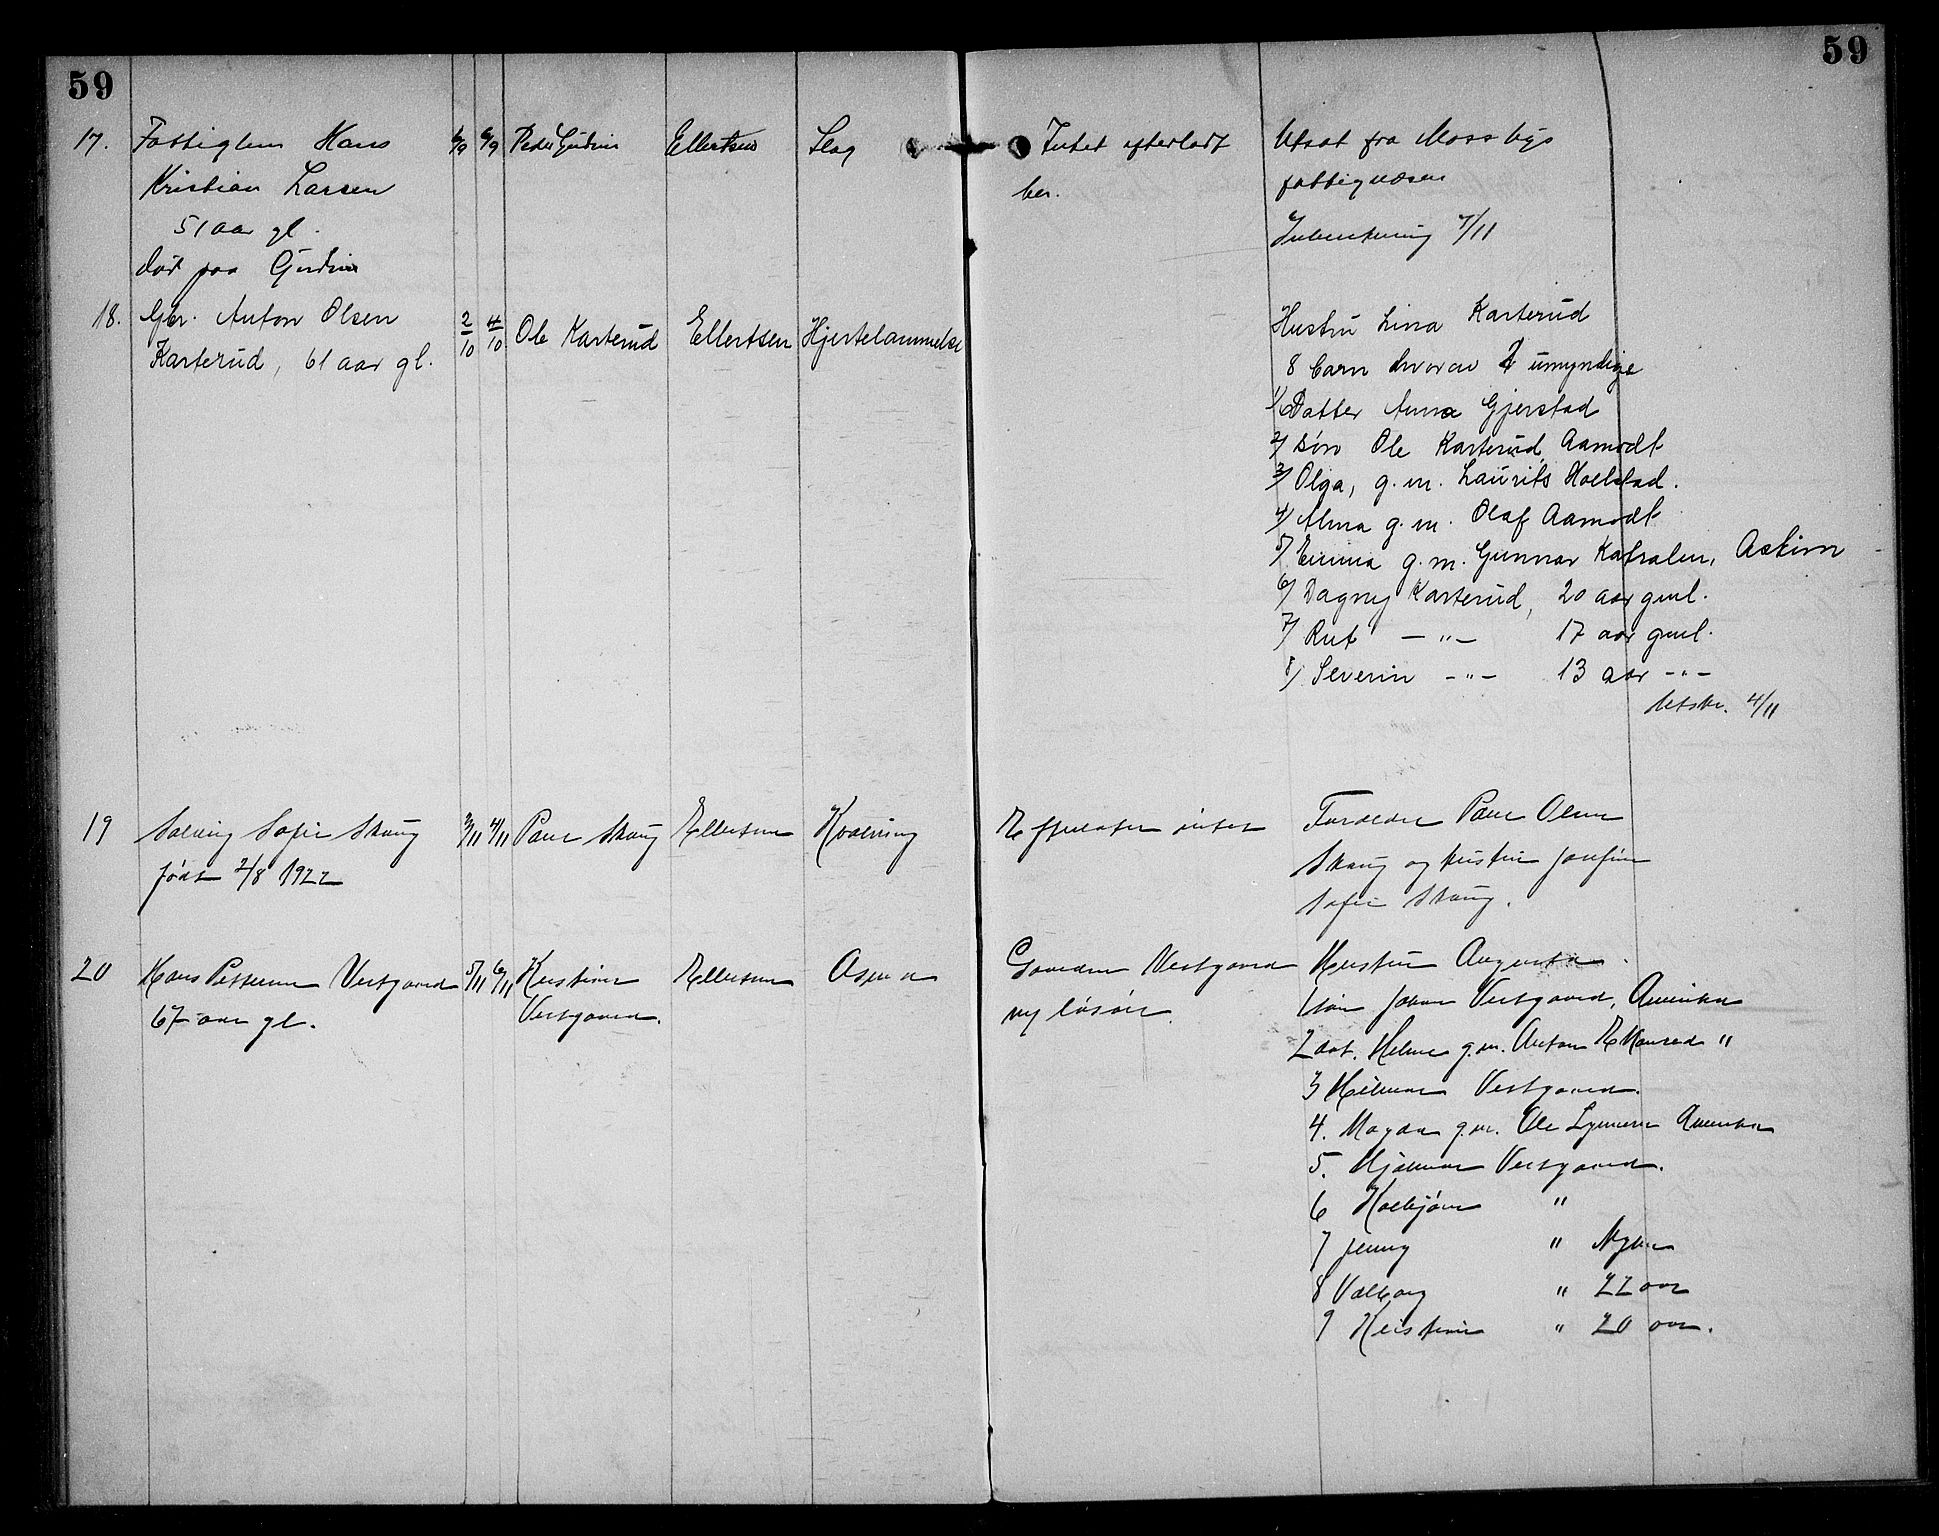 59
59
17. Fattiglem Hans 6/9 6/9 Peder Ellertsen Slag Intet efterladt Utsat fra Moss bys
Kristian Larsen ber. fattigvæsen
51 aar gl. 7/11
død paa
18. Gbr. Anton Olsen 2/10 4/10 Ole Karterud Ellertsen Hjertelammelse Hustru Lina Karterud
Karterud, 61 aar gl. 8 barn hvorav 2 umyndige
1/ Datter Anna Gjerstad
2/ Søn Ole Karterud Aamodt
3/ Olga, g.m. Laurits Hoelstad.
4/ Alma g.m. Olaf Aamodt
5/ Emma g.m. Gunnar Askim
6/ Dagny Karterud, 20 aar gml.
7/ Rut — " — 17 aar gml.
8/ Severin — " — 13 aar — " —
Utskr. 4/11
19 Solveig Sofie Skaug 3/11 4/11 Paul Skaug Ellertsen Kvælning Efterlater intet Forældre Paul Olsen
født 2/8 1922 Skaug og hustru Josefine
Sofie Skaug.
20 Hans Pettersen Vestgaard 5/11 6/11 Kristine Ellertsen Asma Gaarden Vestgaard Hustru Augusta.
67 aar gl. Vestgaard. og løsøre. 1 søn Johan Vestgaard, Amerika
2 dat. g.m. Anton "
3 Hilmar Vestgaard.
4. Magda g.m. Ole Amerika
5. Hjalmar Vestgaard.
6 Kolbjørn "
7 Jenny "
8 Valborg " 22 aar
9 Kristine " 20 aar.